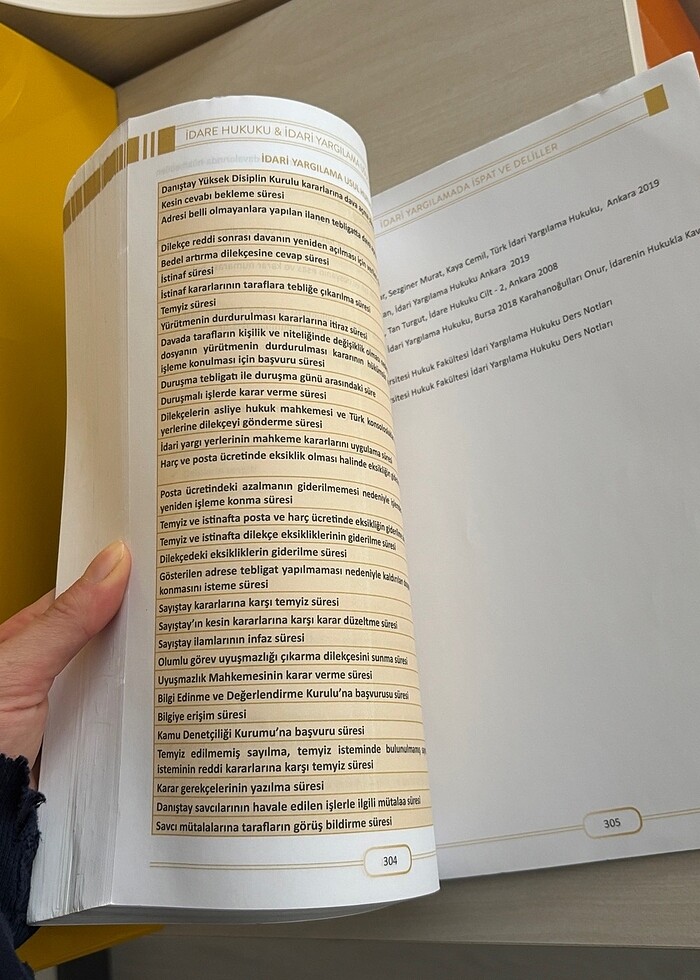 İDARE HUKUKU & İDARİ YARGILAMA
İDARİ YARGILAMA USUL
Danıştay Yüksek Disiplin Kurulu kararlarına dava
Kesin cevabı bekleme süresi
Adresi belli olmayanlara yapılan ilanen tebligatta
Dilekçe reddi sonrası davanın yeniden açılması için
Bedel artırma dilekçesine cevap süresi
İstinaf süresi
İstinaf kararlarının taraflara tebliğe çıkarılma süresi
Temyiz süresi
Yürütmenin durdurulması kararlarına itiraz süresi
Davada tarafların kişilik ve niteliğinde değişiklik
dosyanın yürütmenin durdurulması kararının
işleme konulması için başvuru süresi
Duruşma tebligatı ile duruşma günü arasındaki süre
Duruşmalı işlerde karar verme süresi
Dilekçelerin asliye hukuk mahkemesi ve Türk
yerlerine dilekçeyi gönderme süresi
İdari yargı yerlerinin mahkeme kararlarını uygulama süresi
Harç ve posta ücretinde eksiklik olması halinde eksikliğin
Posta ücretindeki azalmanın giderilmemesi nedeniyle
yeniden işleme konma süresi
Temyiz ve istinafta posta ve harç ücretinde eksikliğin
Temyiz ve istinafta dilekçe eksikliklerinin giderilme süresi
Dilekçedeki eksikliklerin giderilme süresi
Gösterilen adrese tebligat yapılmaması nedeniyle
konmasını isteme süresi
Sayıştay kararlarına karşı temyiz süresi
Sayıştay'ın kesin kararlarına karşı karar düzeltme süresi
Sayıştay ilamlarının infaz süresi
Olumlu görev uyuşmazlığı çıkarma dilekçesini sunma süresi
Uyuşmazlık Mahkemesinin karar verme süresi
Bilgi Edinme ve Değerlendirme Kurulu'na başvurusu süresi
Bilgiye erişim süresi
Kamu Denetçiliği Kurumu'na başvuru süresi
Temyiz edilmemiş sayılma, temyiz isteminde bulunulmamış
isteminin reddi kararlarına karşı temyiz süresi
Karar gerekçelerinin yazılma süresi
Danıştay savcılarının havale edilen işlerle ilgili mütalaa süresi
Savcı mütalalarına tarafların görüş bildirme süresi
304
İDARİ YARGILAMADA İSPAT VE DELİLLER
Sezginer Murat, Kaya Cemil, Türk İdari Yargılama Hukuku, Ankara 2019
İdari Yargılama Hukuku Ankara 2019
Tan Turgut, İdare Hukuku Cilt - 2, Ankara 2008
İdari Yargılama Hukuku, Bursa 2018 Karahanoğulları Onur, İdarenin Hukukla
Hukuk Fakültesi İdari Yargılama Hukuku Ders Notları
Hukuk Fakültesi İdari Yargılama Hukuku Ders Notları
305